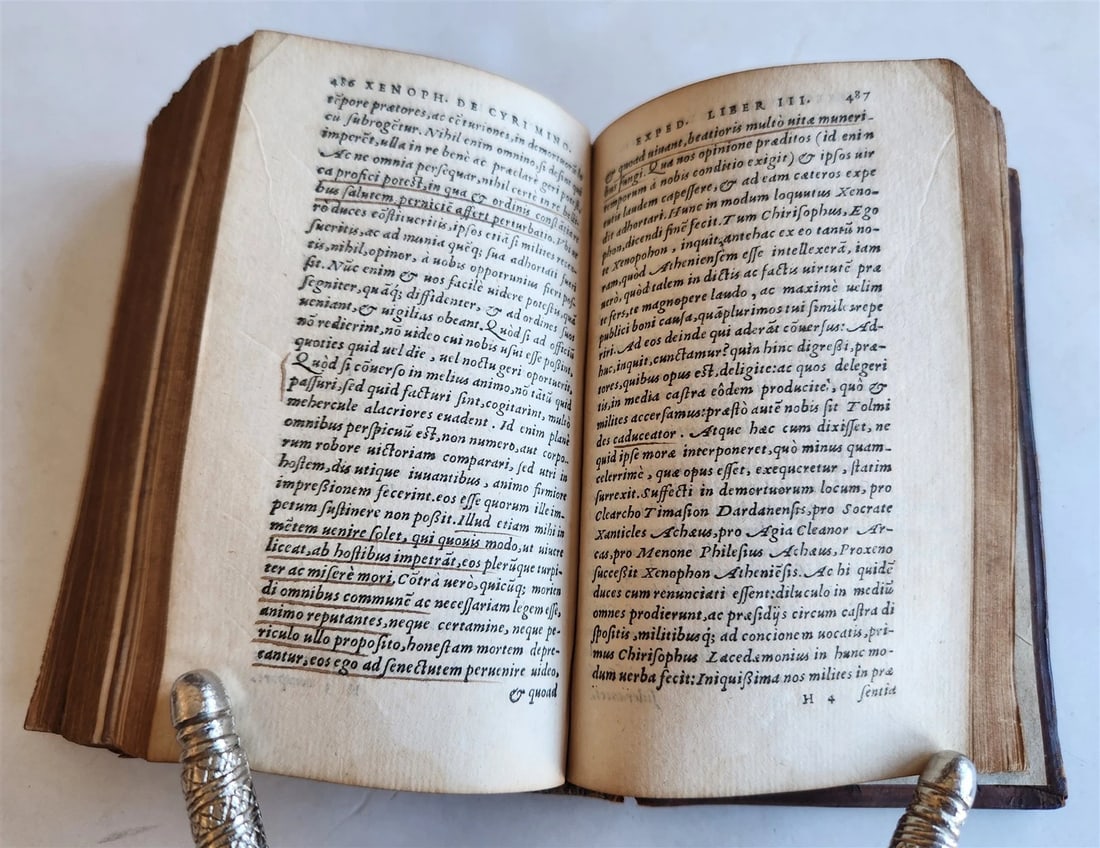 486 XENOPH. DE CYRI MINO.
tēpore prætores, ac cēturiones, in demortuorū lo
cū subrogētur. Nihil enim omnino, si desit qui
imperēt, ulla in re benè ac præclarè geri potest.
Ac ne omnia persequar, nihil certè in re belli-
ca profici potest, in qua & ordinis constātia re
bus salutem perniciē affert perturbatio. Vbi ve
rò duces cōstitueritis, ipsos etiā si milites recē-
sueritis, ac ad munia quēq; sua adhortati fueri
tis, nihil, opinor, à uobis opportunius fieri pos-
sit. Nūc enim & uos facilè uidere potestis, quā
segniter, quāq; diffidenter, & ad ordines suos
ueniant, & uigilias obeant. Quòd si ad officiū
nō redierint, nō uideo cui nobis usui esse possint,
quoties quid uel die, uel noctu geri oportuerit,
Quòd si cōuerso in melius animo, nō tātū quid
passuri, sed quid facturi sint, cogitarint, multò
mehercule alacriores euadent. Id enim planè
omnibus perspicuū est, non numero, aut corpo-
rum robore uictoriam comparari, sed utri in
hostem, dis utique iuuantibus, animo firmiore
impreßionem fecerint. eos esse quorum ille im-
petum sustinere non poßit. Illud etiam mihi in
mētem uenire solet, qui quouis modo, ut uiuere
liceat, ab hostibus impetrāt, eos plerūque turpi-
ter ac miserè mori. Cōtrà uerò, quicūq; morien
di omnibus communē ac necessariam legem esse,
animo reputantes, neque certamine, neque pe-
riculo ullo proposito, honestam mortem depre-
cantur, eos ego ad senectutem peruenire uideo,
& quoad
EXPED. LIBER III. 487
& quoad uiuant, beatioris multò uitæ muneri-
bus fungi. Qua nos opinione præditos (id enim
temporum à nobis conditio exigit) & ipsos uir
tutis laudem capessere, & ad eam cæteros expe
dit adhortari. Hunc in modum loquutus Xeno-
phon, dicendi finē fecit. Tum Chirisophus, Ego
te Xenopohon, inquit, antehac ex eo tantū no-
ram, quòd Atheniensem esse intellexerā, iam
uerò, quòd talem in dictis ac factis uirtutē præ
te fers, te magnopere laudo, ac maximè uelim
publici boni causa, quāplurimos tui similes repe
riri. Ad eos deinde qui aderāt cōuersus: Ad-
huc, inquit, cunctamur? quin hinc digreßi, præ-
tores, quibus opus est, deligite: ac quos delegeri
tis, in media castra eôdem producite, quò &
milites accersamus: præstò autē nobis sit Tolmi
des caduceator. Atque hæc cum dixisset, ne
quid ipse moræ interponeret, quò minus quam-
celerrimè, quæ opus esset, exequeretur, statim
surrexit. Suffecti in demortuorum locum, pro
Clearcho Timasion Dardanensis, pro Socrate
Xanticles Achæus, pro Agia Cleanor Ar-
cas, pro Menone Philesius Achæus, Proxeno
successit Xenophon Atheniēsis. Ac hi quidē
duces cum renunciati essent: diluculo in mediū
omnes prodierunt, ac præsidijs circum castra di
spositis, militibusq́; ad concionem uocatis, pri-
mus Chirisophus Lacedæmonius in hunc mo-
dum uerba fecit: Iniquißima nos milites in præ
H 4 sentia